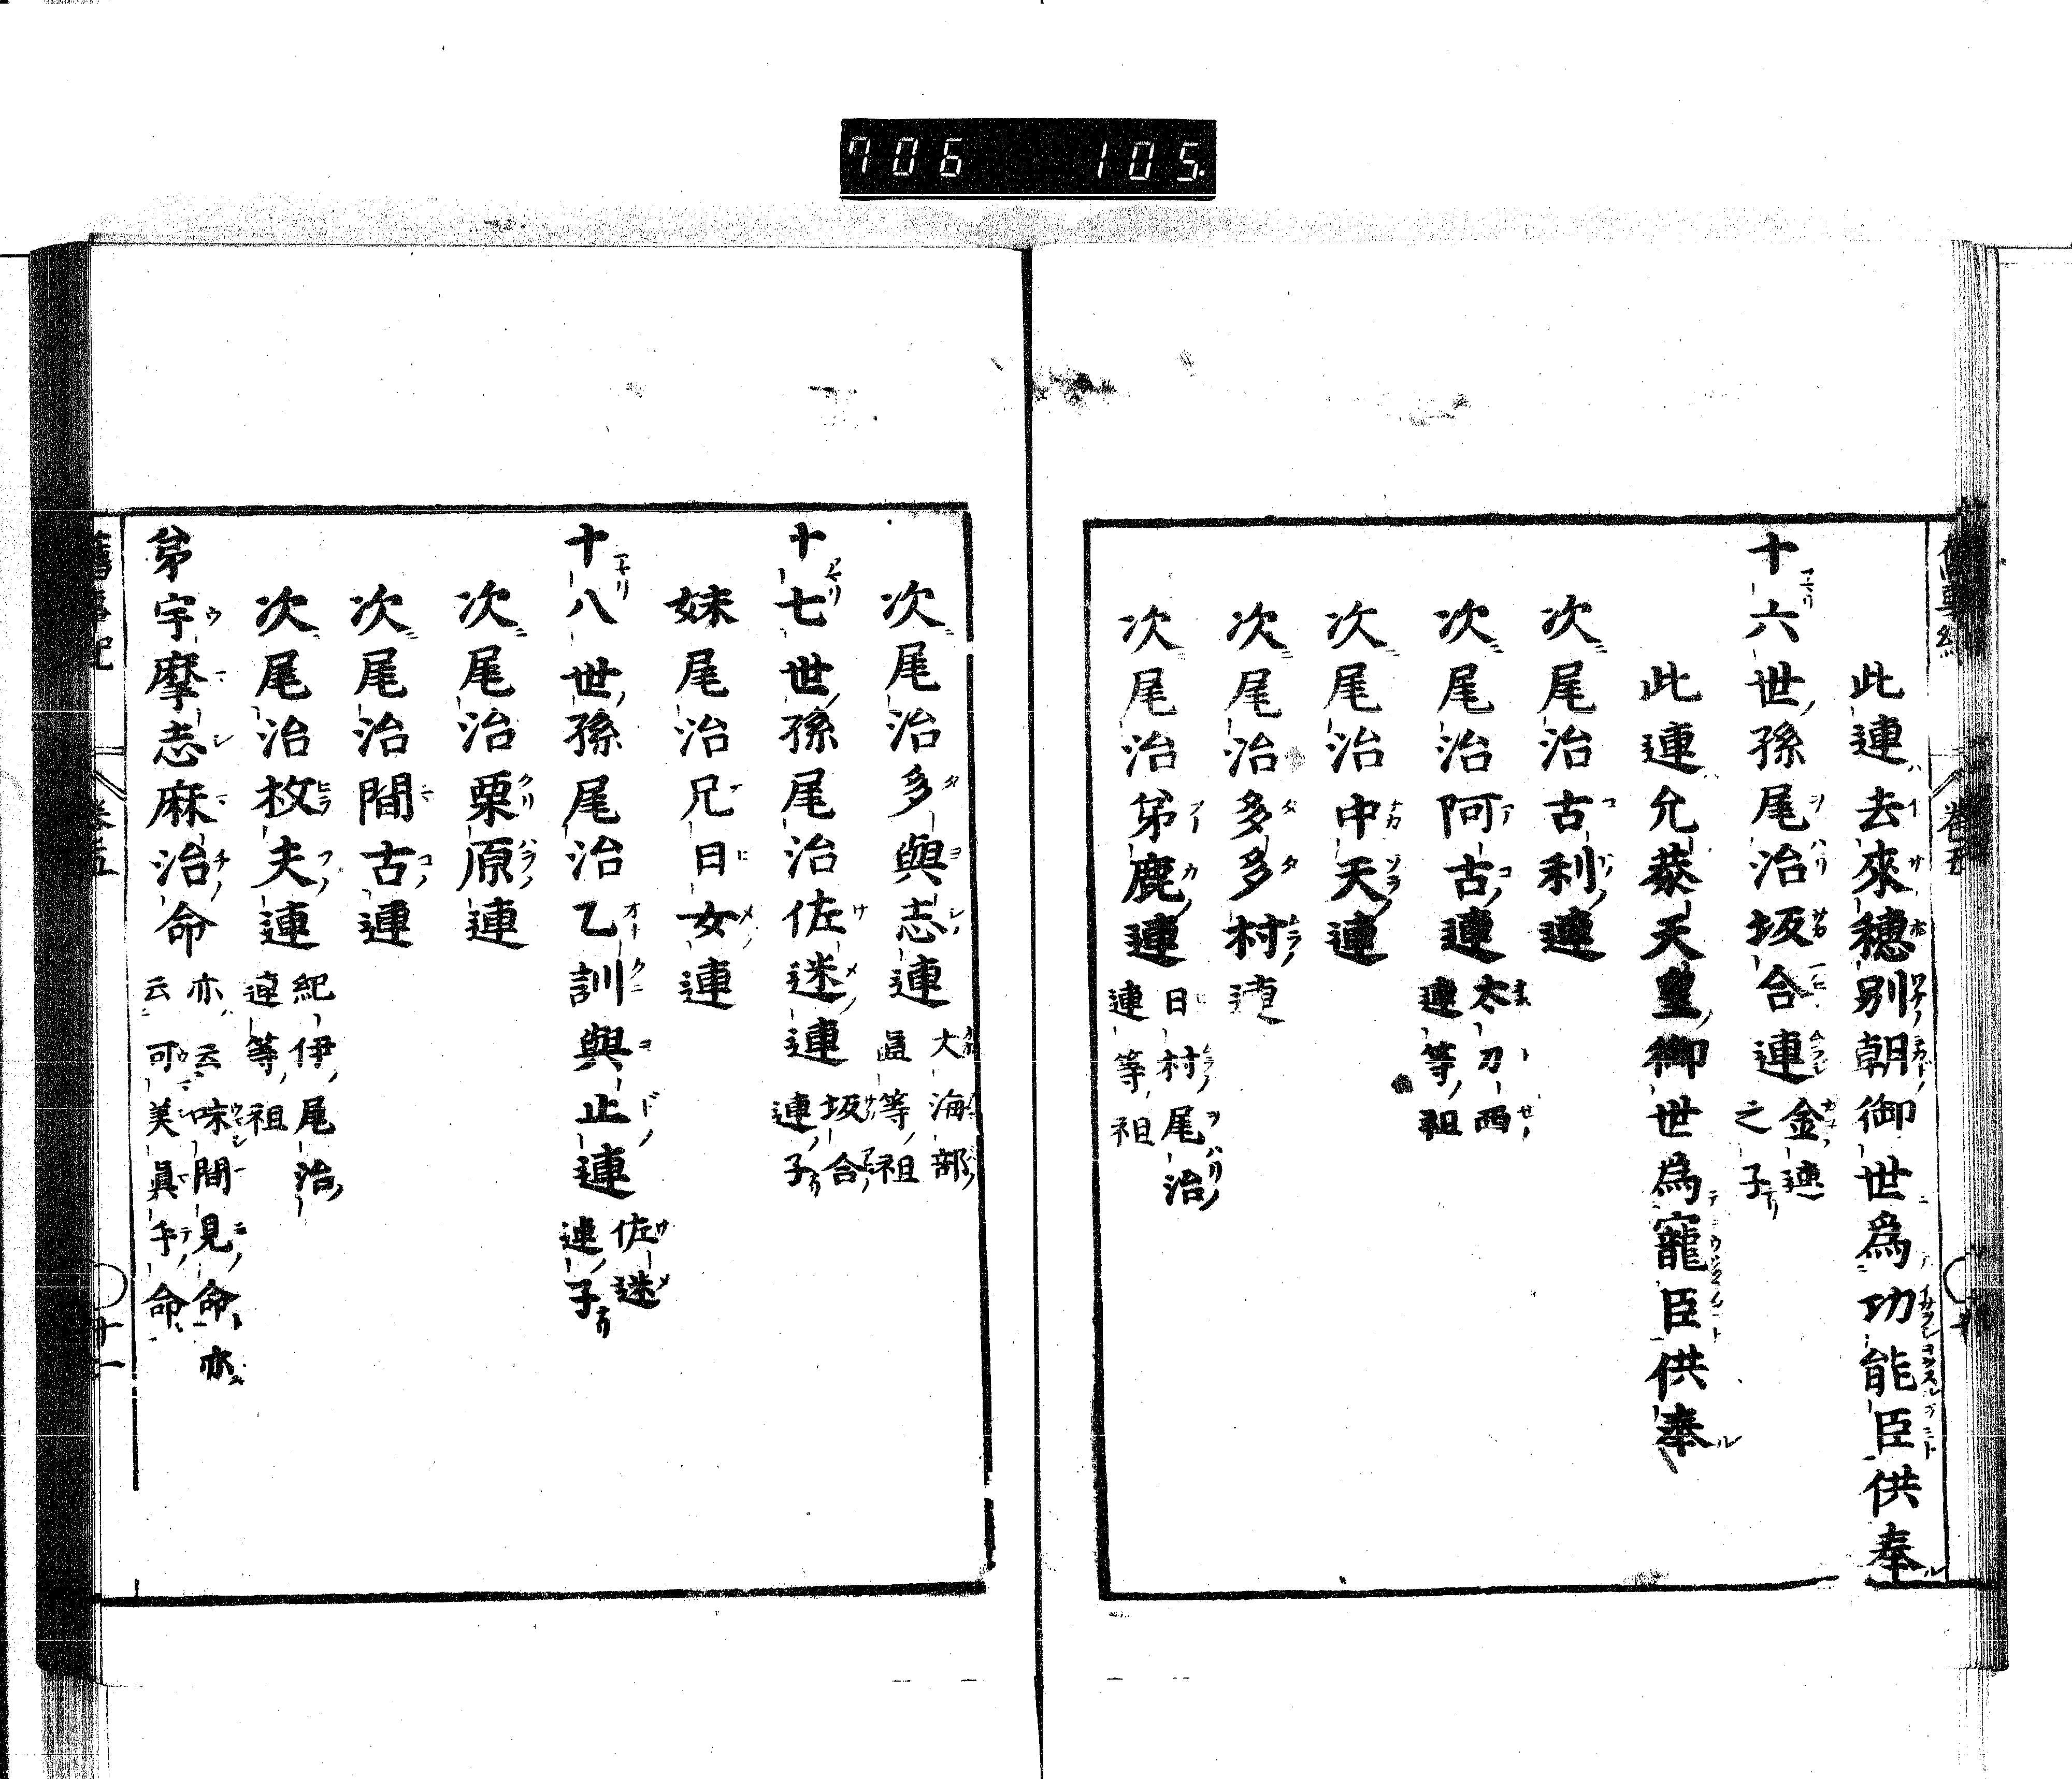 706 105.
此連去來穗別朝御世爲功能臣供奉
十六世孫尾治坂合連 金連
之子
此連允恭天皇御世爲寵臣供奉
次尾治古利連
次尾治阿古連 太刀西
連等祖
次尾治中天連
次尾治多多村連
次尾治弟鹿連 日村尾治
連等祖
次尾治多與志連 大海部
直等祖
十七世孫尾治佐迷連 坂合
連子
妹尾治兄日女連
十八世孫尾治乙訓與止連 佐迷
連子
次尾治栗原連
次尾治間古連
次尾治枚夫連 紀伊尾治
連等祖
弟宇摩志麻治命 亦云味間見命亦
云可美眞手命
舊事紀 卷五 十一